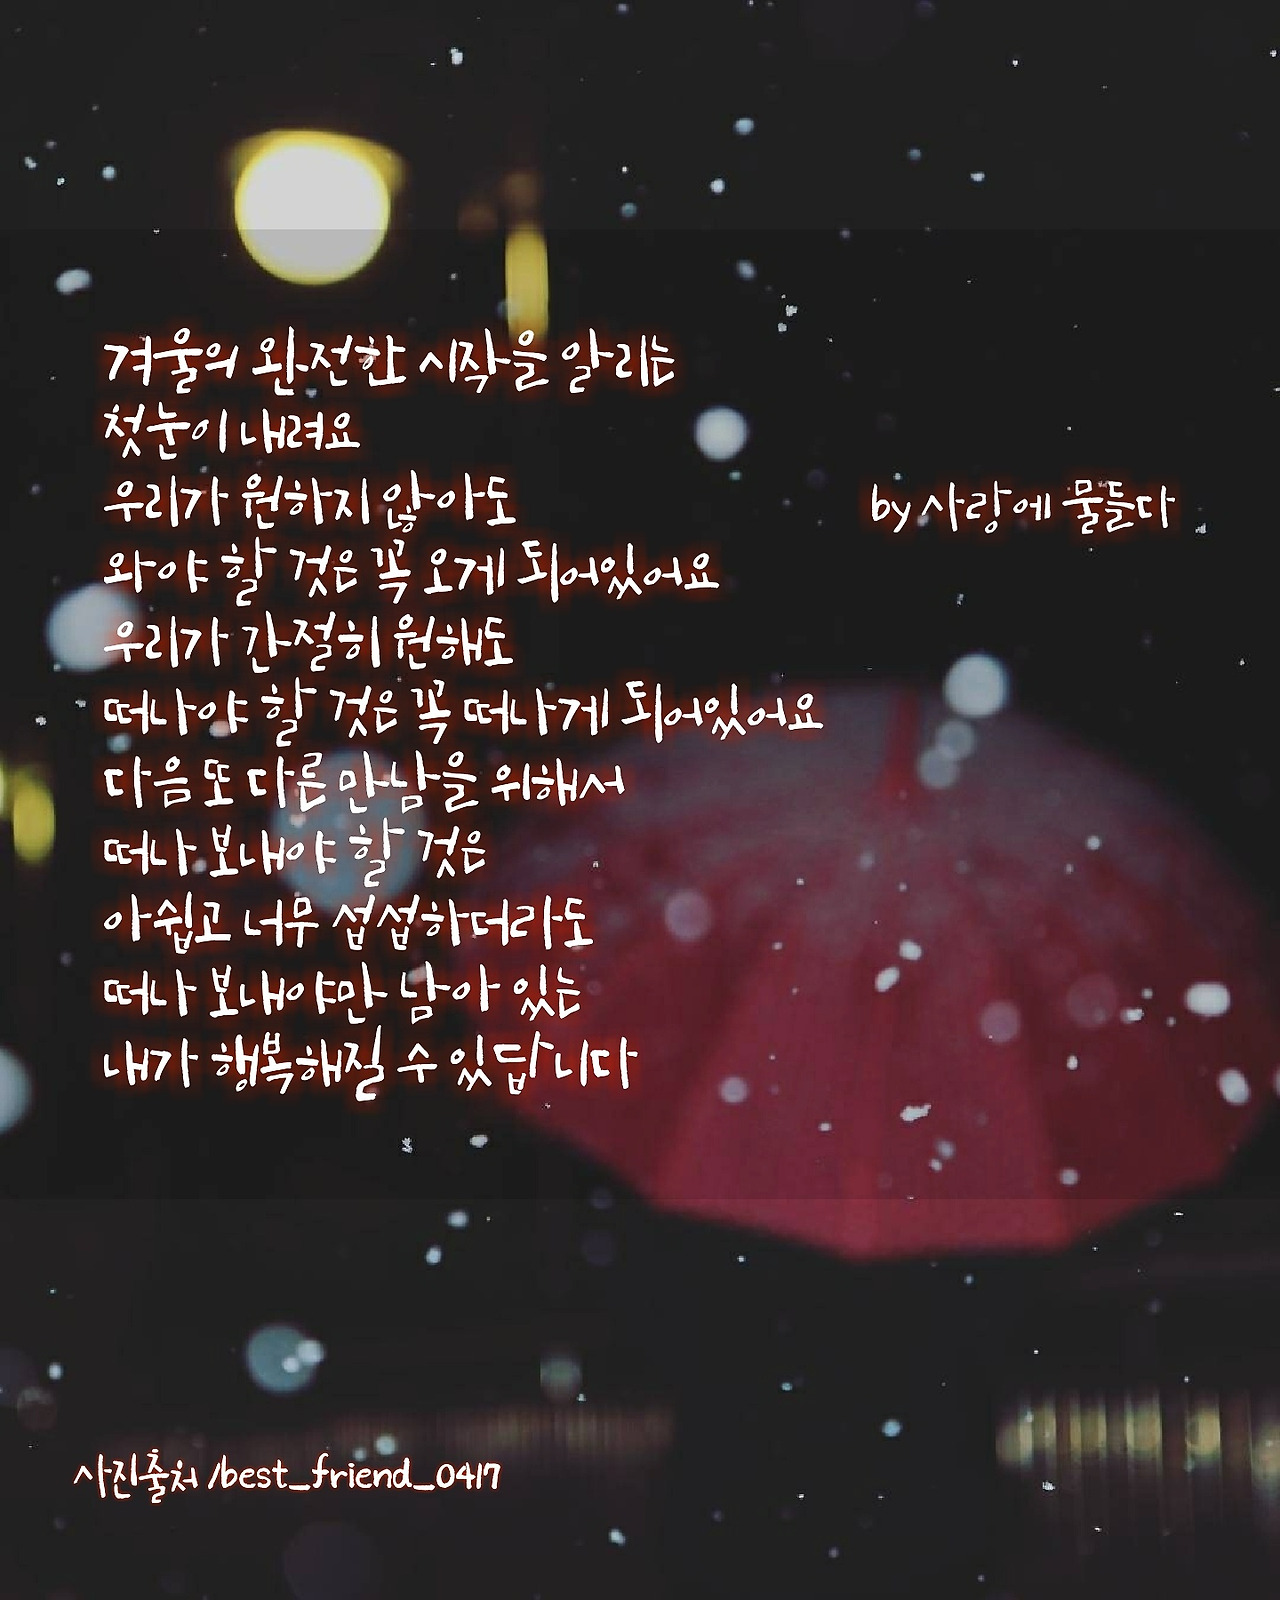 겨울의 완전한 시작을 알리는
첫눈이 내려요
우리가 원하지 않아도
와야 할 것은 꼭 오게 되어있어요
우리가 간절히 원해도
떠나야 할 것은 꼭 떠나게 되어있어요
다음 또 다른 만남을 위해서
떠나 보내야 할 것은
아쉽고 너무 섭섭하더라도
떠나 보내야만 남아 있는
내가 행복해질 수 있답니다
by 사랑에 물들다
사진출처 /best_friend_0417